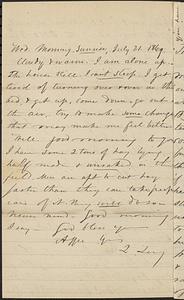 Wed. Morning, Sunrise, July 21. 1869
Cloudy & warm. I am alone up.
The house still. I cant sleep. I get
tired of turning over over in the
bed, & get up, come down, go out
the air, try to make some change
that may make me feel better
Well good morning to you
I have some 2 tons of hay lying
half made & unraked in the
field. Men are apt to cut hay
faster than they can take
care of it. They will do so
never mind. Good morning
I say. God bless you
Affec Yrs